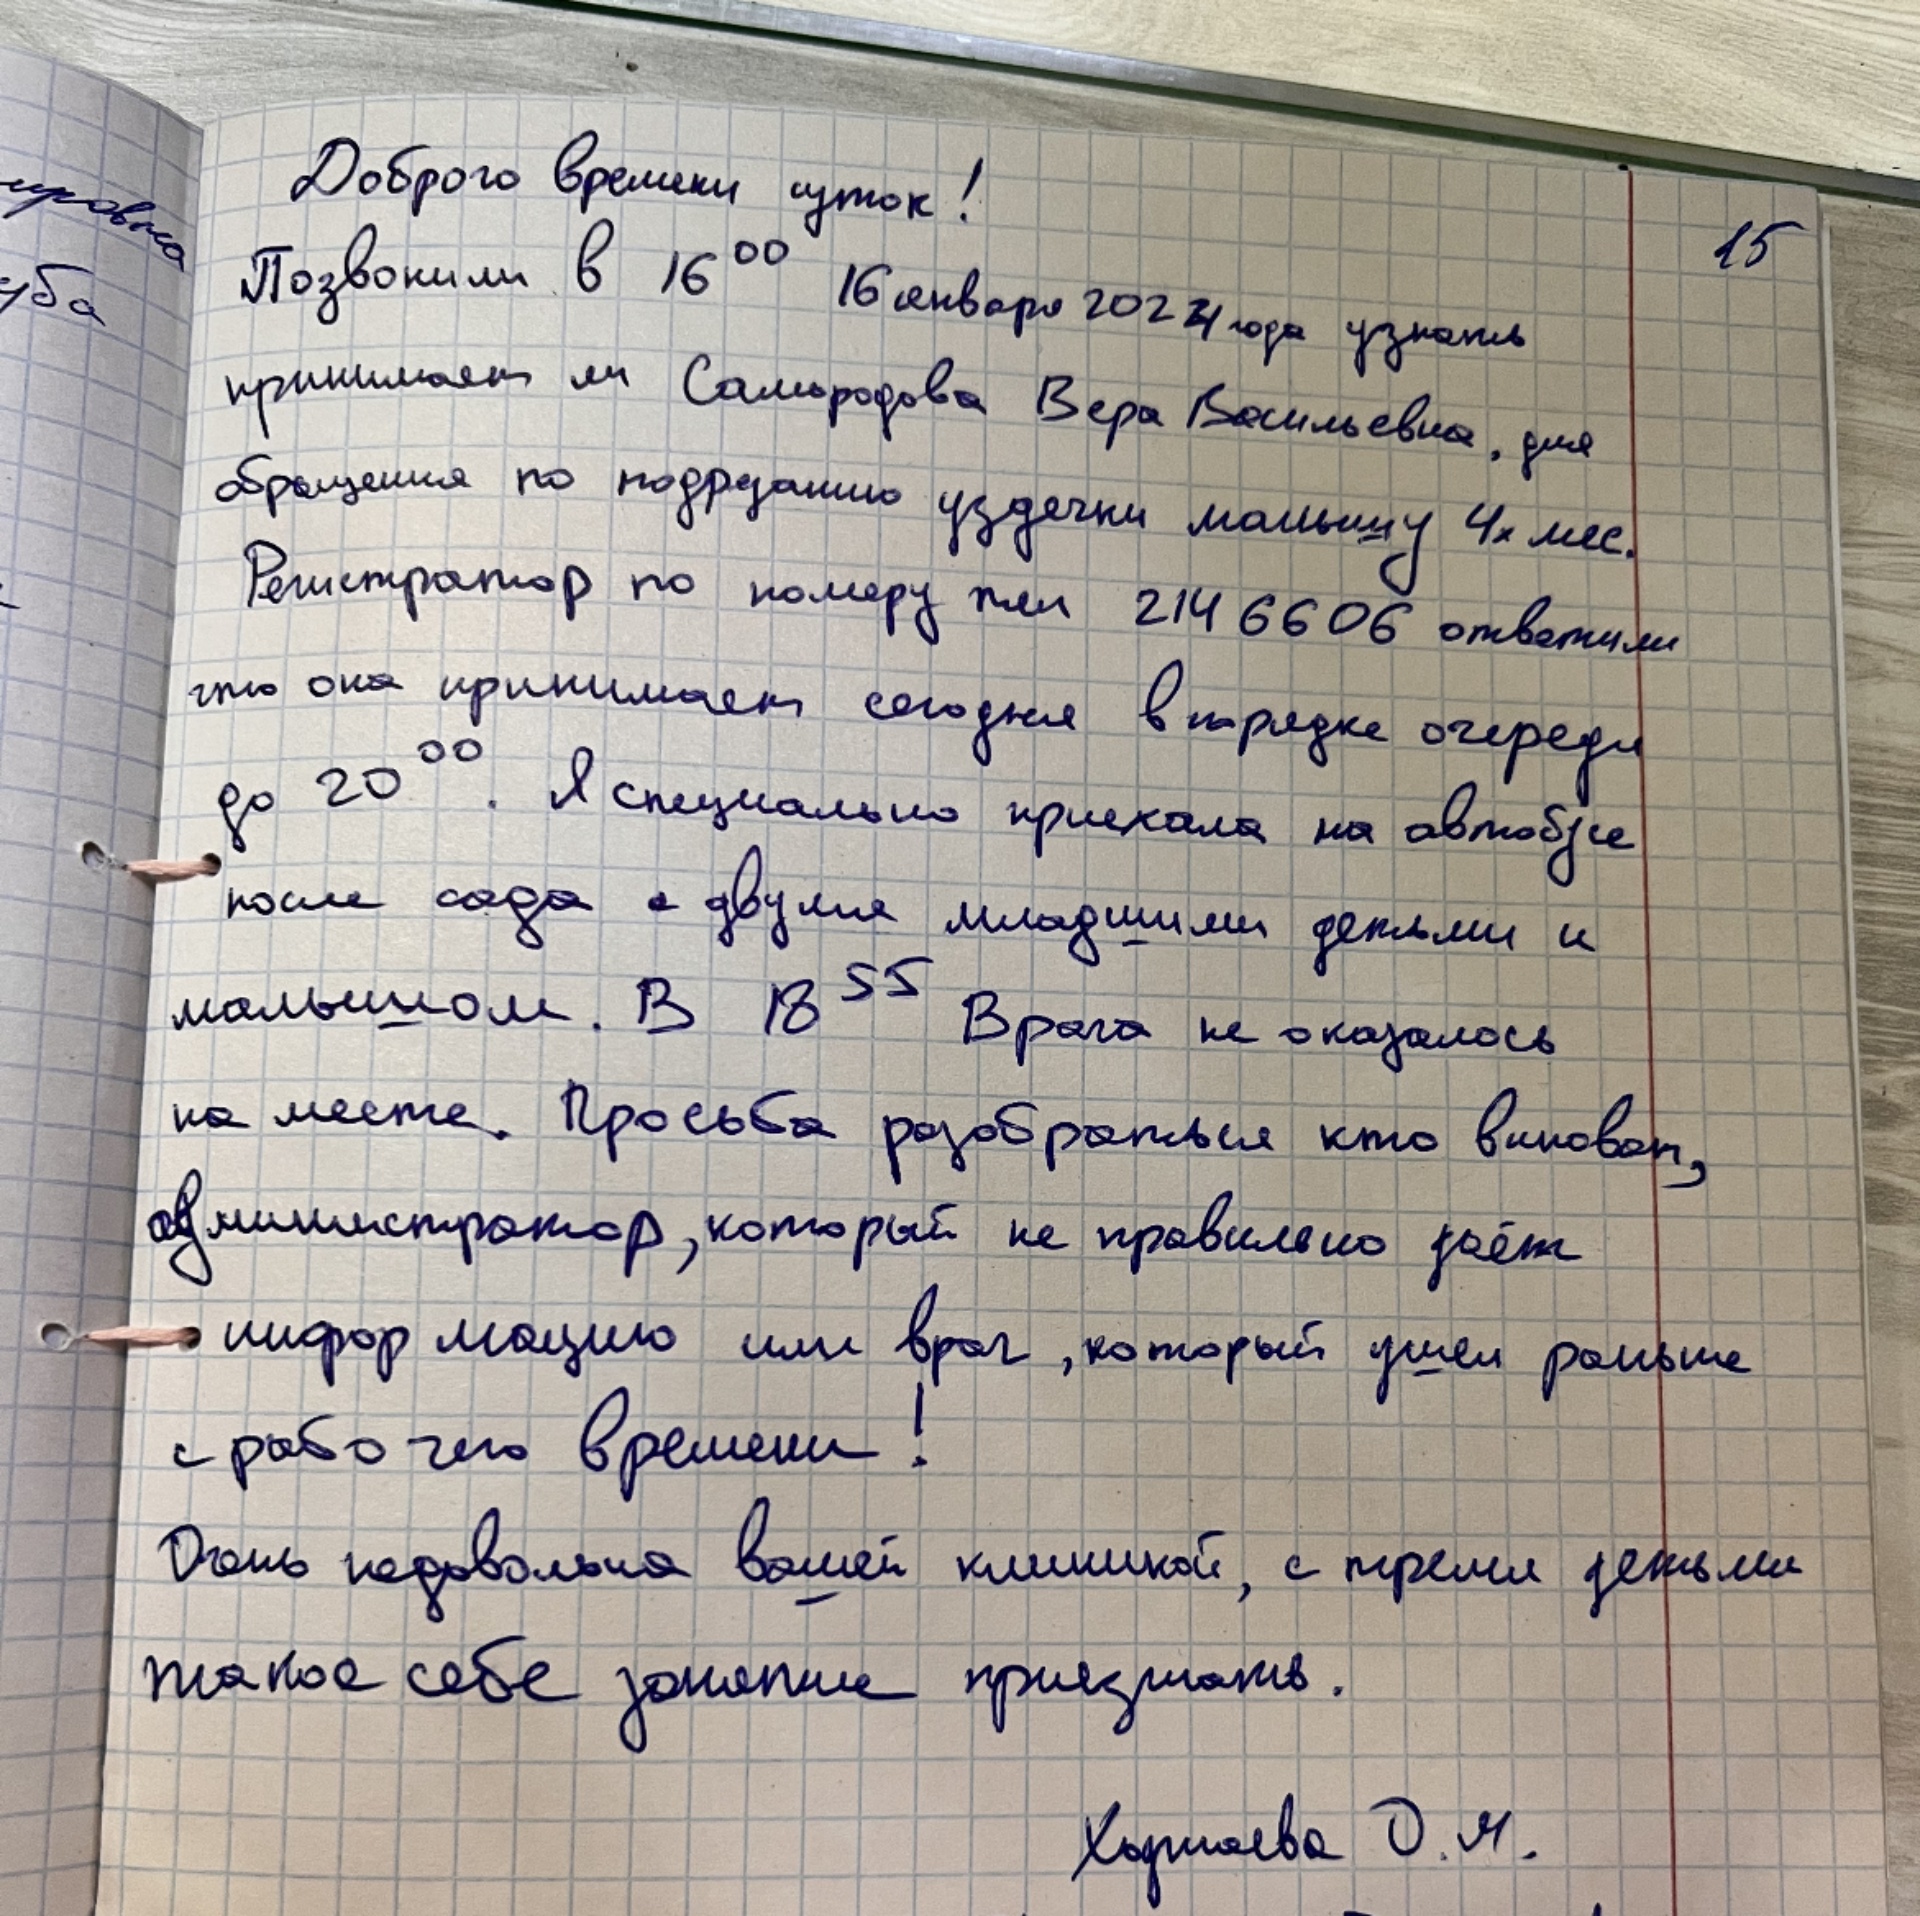 ировна
уба
15
Доброго времени суток!
Позвонили в 16 00 16 января 2024 года узнать
принимает ли Самородова Вера Васильевна, для
обращения по подрезанию уздечки малышу 4х мес.
Регистратор по номеру тел 214 6606 ответили
что она принимает сегодня в порядке очереди
до 20 00. Я специально приехала на автобусе
после сада с двумя младшими детьми и
малышом. В 18 55 Врача не оказалось
на месте. Просьба разобраться кто виноват,
администратор, который не правильно даёт
информацию или врач, который ушел раньше
с рабочего времени!
Очень недовольна вашей клиникой, с тремя детьми
такое себе занятие приезжать.
О.М.